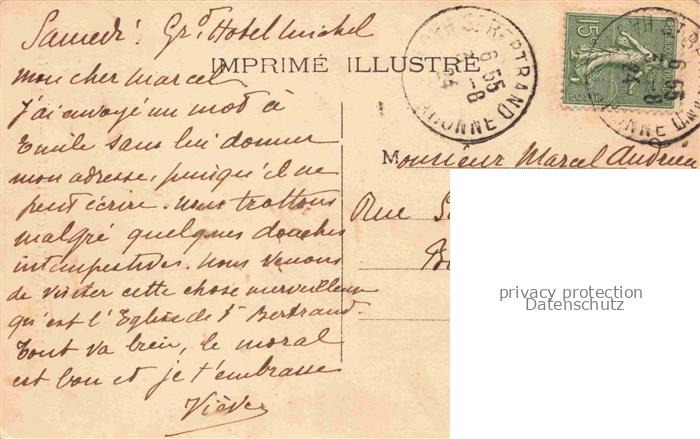 Samedi! Grd Hotel Michel
IMPRIMÉ ILLUSTRÉ
mon cher Marcel
J'ai envoyé un mot à
Emile sans lui donner
mon adresse, puisqu'il ne
peut écrire. nous trottons
malgré quelques douches
intempestives. nous venons
de visiter cette chose merveilleuse
qu'est l'Eglise de St Bertrand.
Tout va bien, le moral
est bon et je t'embrasse
Viève
ST BERTRAND
6 55
-8
24
GARONNE
15c
Monsieur Marcel Andrieu
Rue
privacy protection
Datenschutz